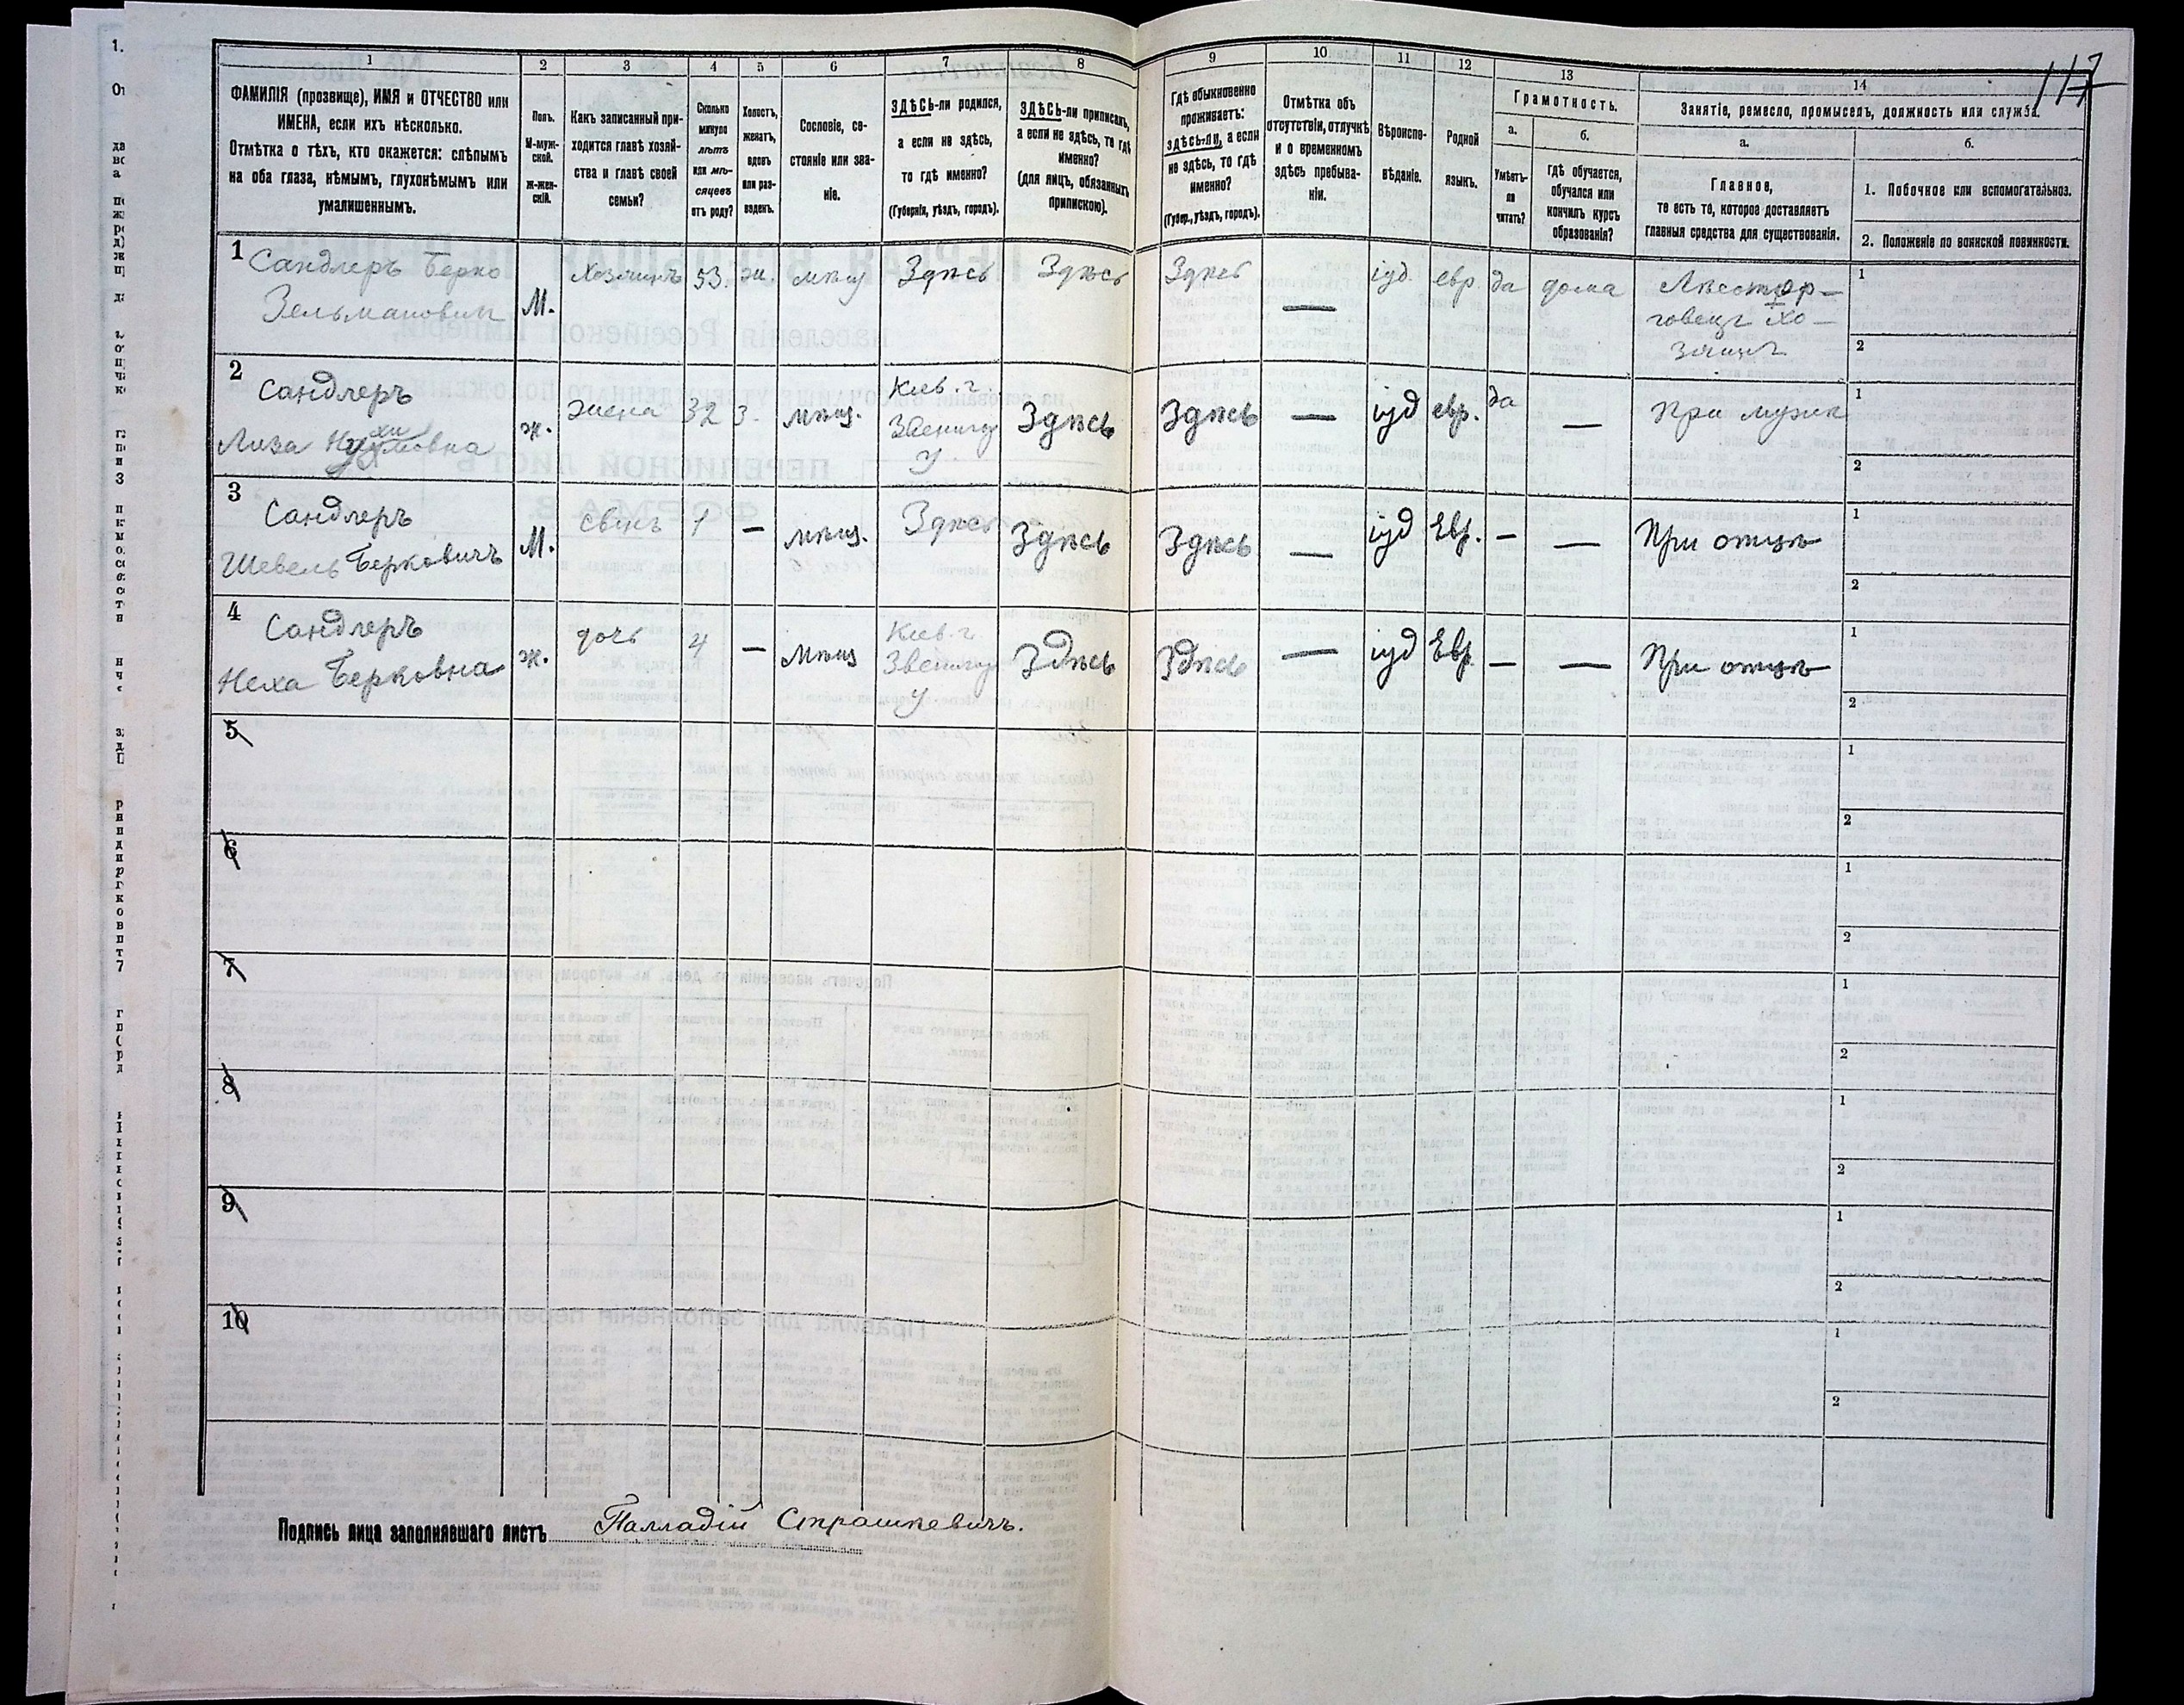 117
1
2
3
4
5
6
7
8
9
10
11
12
13
14
ФАМИЛІЯ (прозвище), ИМЯ и ОТЧЕСТВО или
ИМЕНА, если ихъ нѣсколько.
Отмѣтка о тѣхъ, кто окажется: слѣпымъ
на оба глаза, нѣмымъ, глухонѣмымъ или
умалишеннымъ.
Полъ.
М-муж-
ской.
Ж-жен-
скій.
Какъ записанный при-
ходится главѣ хозяй-
ства и главѣ своей
семьи?
Сколько
минуло
лѣтъ
или мѣ-
сяцевъ
отъ роду?
Холостъ,
женатъ,
вдовъ
или раз-
веденъ.
Сословіе, со-
стояніе или зва-
ніе.
ЗДѢСЬ-ли родился,
а если не здѣсь,
то гдѣ именно?
(Губернія, уѣздъ, городъ).
ЗДѢСЬ-ли приписанъ,
а если не здѣсь, то гдѣ
именно?
(для лицъ, обязанныхъ
припискою).
Гдѣ обыкновенно
проживаетъ:
здѣсь-ли, а если
не здѣсь, то гдѣ
именно?
(Губер., уѣздъ, городъ).
Отмѣтка объ
отсутствіи, отлучкѣ
и о временномъ
здѣсь пребыва-
ніи.
Вѣроиспо-
вѣданіе.
Родной
языкъ.
Грамотность.
а.
Умѣетъ-
ли
читать?
б.
Гдѣ обучается,
обучался или
кончилъ курсъ
образованія?
Занятіе, ремесло, промыселъ, должность или служба.
а.
Главное,
то есть то, которое доставляетъ
главныя средства для существованія.
б.
1. Побочное или вспомогательное.
2. Положеніе по воинской повинности.
1 Сандлеръ Берко
Зельмановичъ
М. Хозяинъ 53. ж. мѣщ Здѣсь Здѣсь Здѣсь — іуд. евр. да дома
говецъ
1
2
2 Сандлеръ
Лиза
ж. жена 32 З. мѣщ. Кіев. г.
Звениг
у.
Здѣсь Здѣсь — іуд евр. да — При мужѣ
1
2
3 Сандлеръ
Шевель Берковичъ
М. сынъ 1 — мѣщ. Здѣсь Здѣсь Здѣсь — іуд Евр. — — При отцѣ
1
2
4 Сандлеръ
Неха Берковна
ж. дочь 4 — мѣщ Кіев. г.
Звениг
у
Здѣсь Здѣсь — іуд Евр. — — При отцѣ
1
2
5
1
2
6
1
2
7
1
2
8
1
2
9
1
2
10
1
2
Подпись лица заполнявшаго листъ Палладій Страшкевичъ.